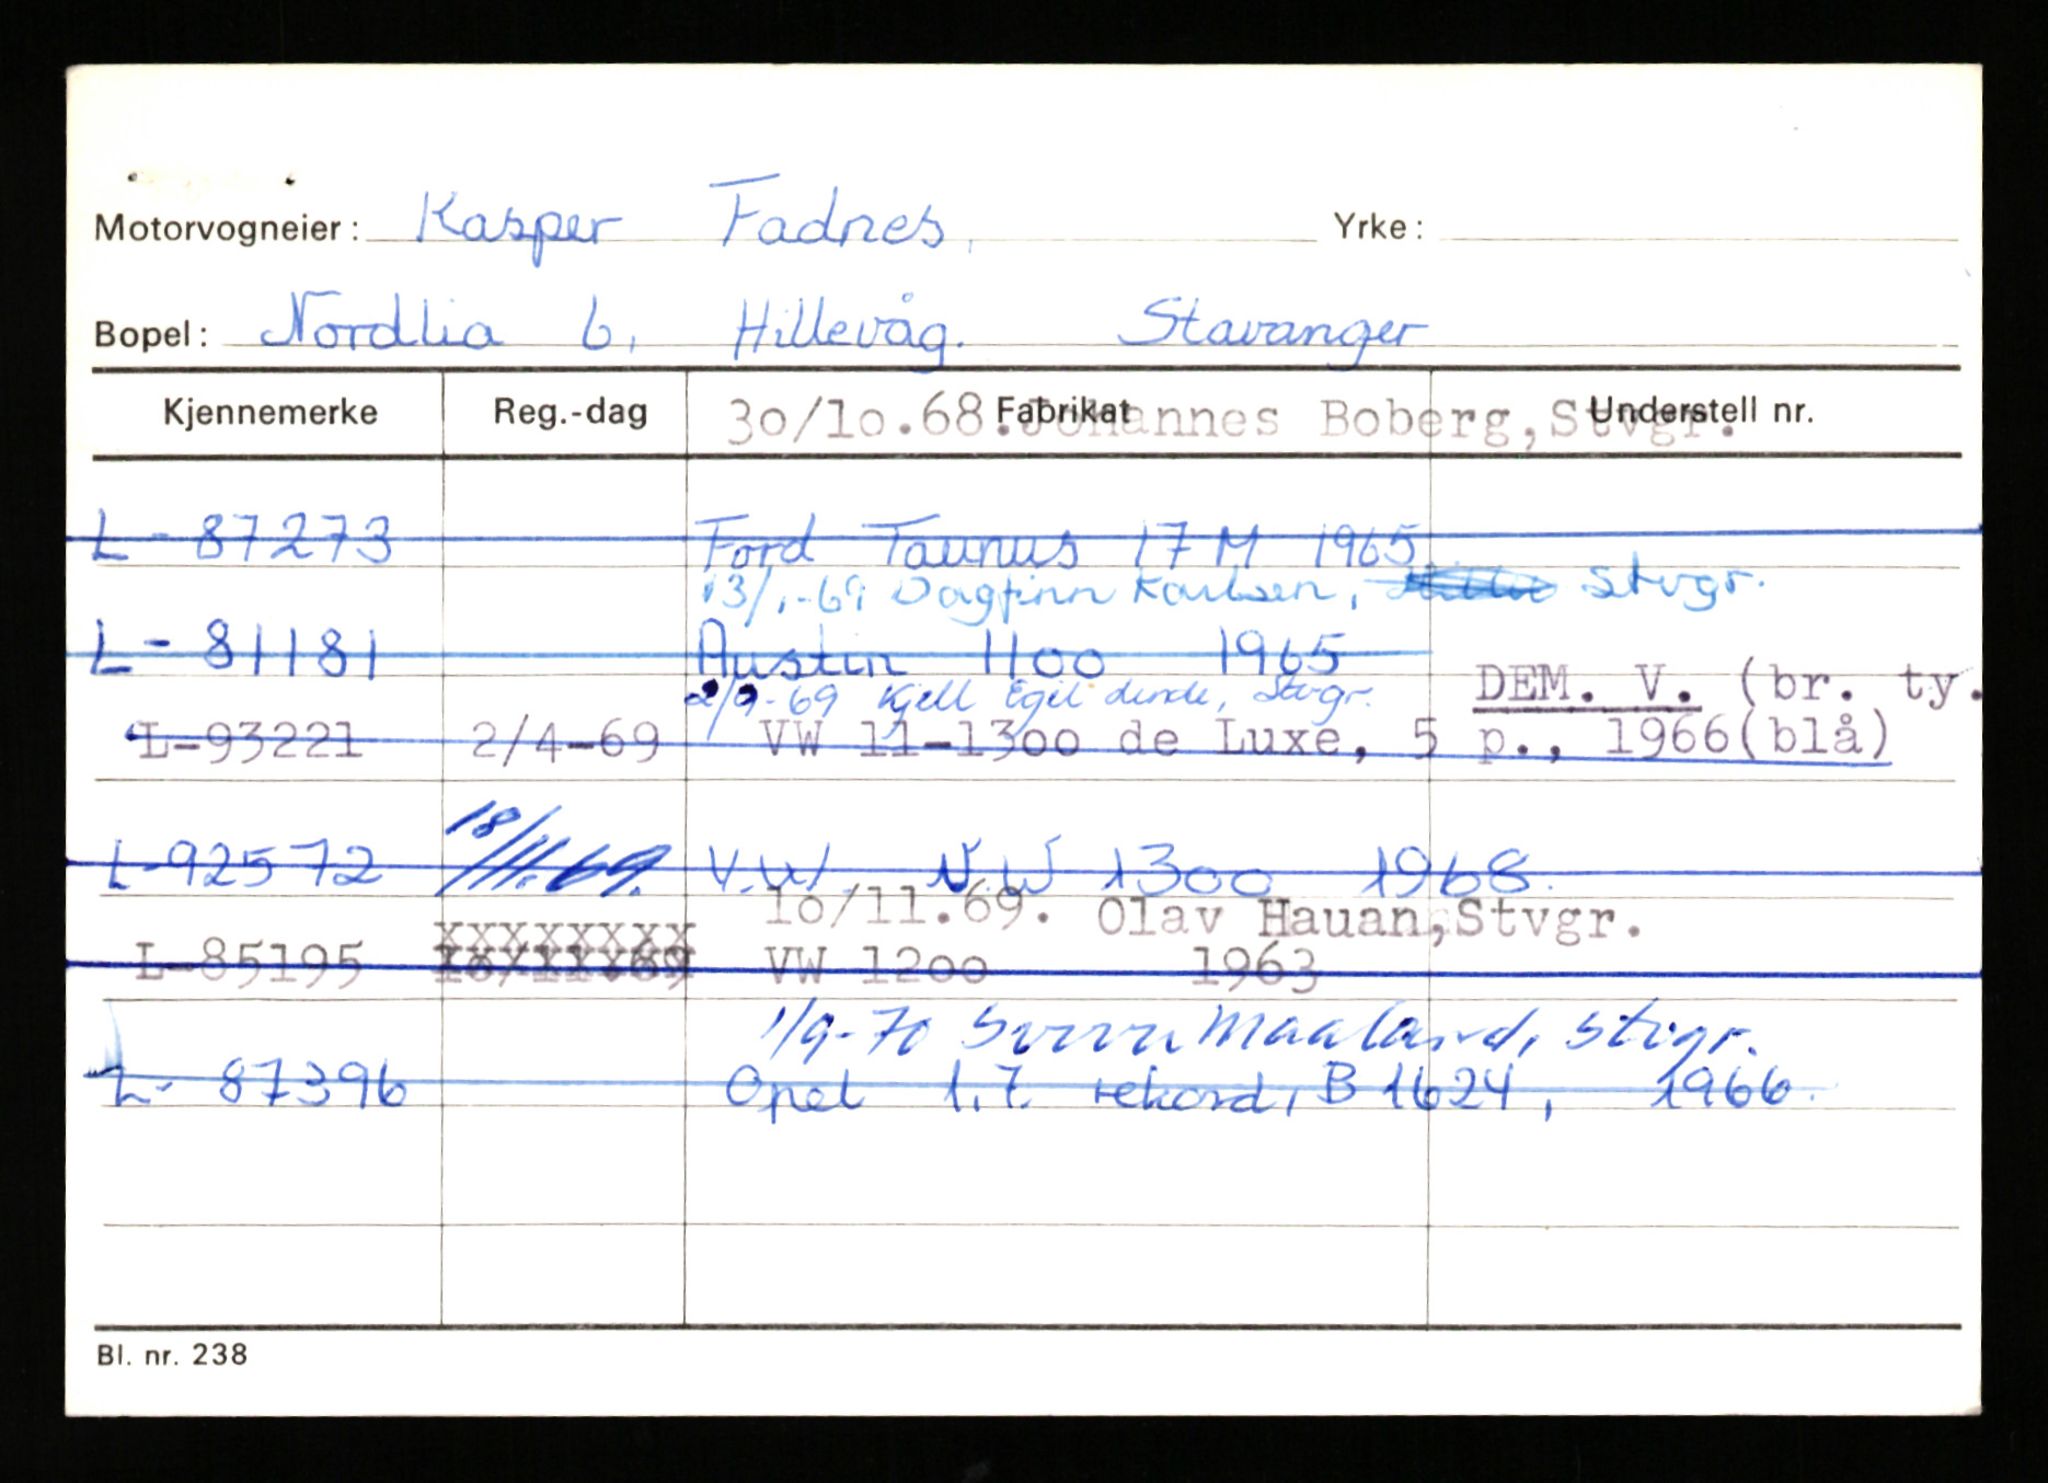 Motorvogneier: Kasper Fadnes. Yrke:
Bopel: Nordlia 6, Hillevåg. Stavanger
Kjennemerke Reg.-dag Fabrikat Understell nr.
30/10.68. Johannes Boberg, Stvgr.
L-87273 Ford Taunus 17 M 1965
13/1-69 Dagfinn Karlsen, Stvgr.
L-81181 Austin 1100 1965
2/9-69 Kjell Egil Lende, Stvgr. DEM. V. (br. ty.
L-93221 2/4-69 VW 11-1300 de Luxe, 5 p., 1966(blå)
L-92572 18/11.69. V.W. N.W 1300 1968.
10/11.69. Olav Hauan, Stvgr.
L-85195 VW 1200 1963
1/9-70 Maaland, Stvgr.
L-87396 Opel 1,7 rekord, B 1624, 1966.
Bl. nr. 238